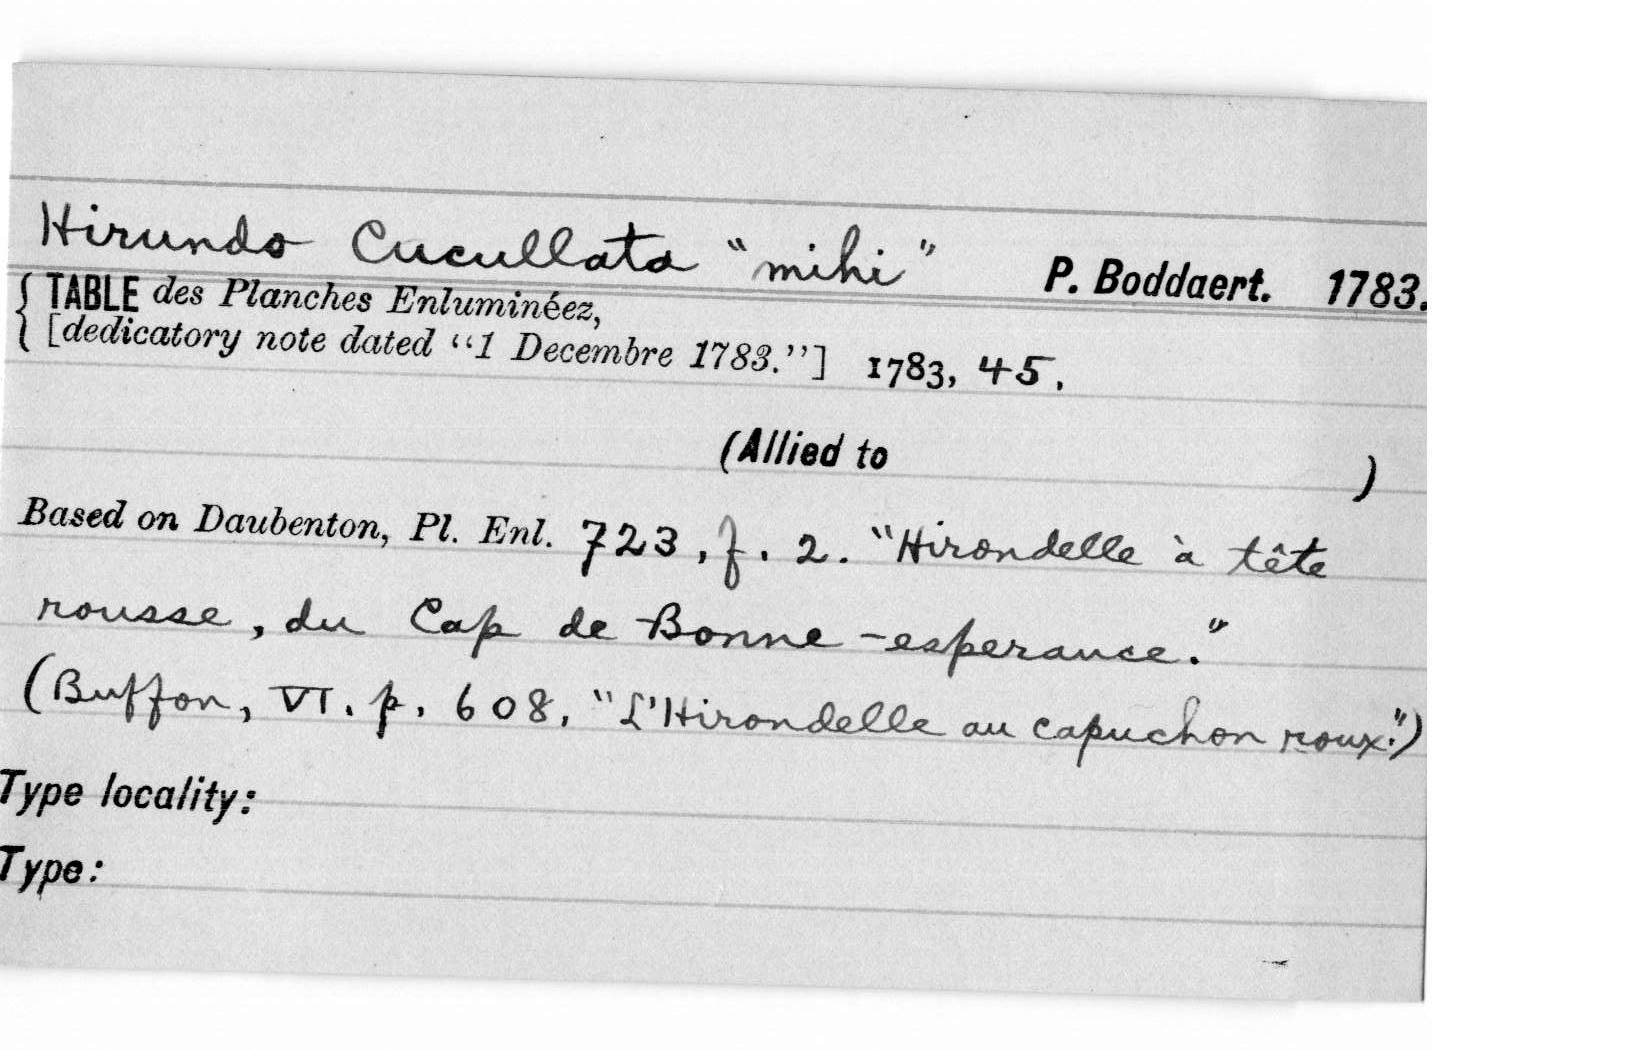 Hirundo Cucullata "mihi" P. Boddaert. 1783.
{ TABLE des Planches Enluminéez,
[dedicatory note dated "1 Decembre 1783."] 1783, 45.
(Allied to )
Based on Daubenton, Pl. Enl. 723, f. 2. "Hirondelle à tête
rousse, du Cap de Bonne-esperance."
(Buffon, VI. p. 608. "L'Hirondelle au capuchon roux.")
Type locality:
Type: